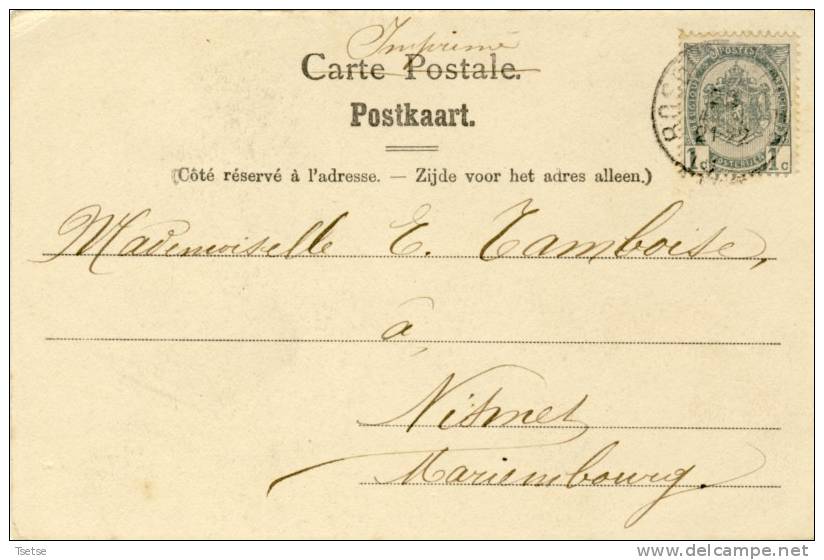 Imprimé
Carte Postale.
Postkaart.
(Côté réservé à l'adresse. — Zijde voor het adres alleen.)
POSTES
BELGIQUE
1c 1c
Mademoiselle E. Tamboise,
à
Nismes
Mariembourg.
Tsetse
delcampe.net